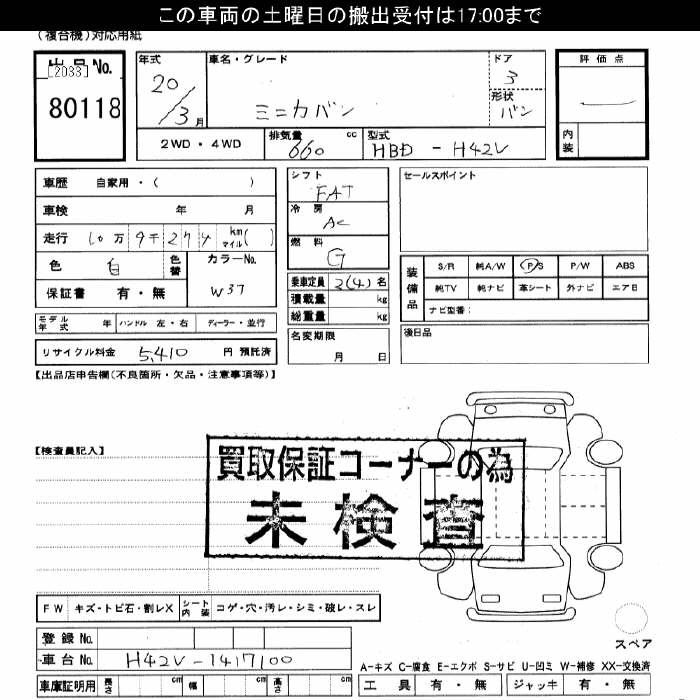 この車両の土曜日の搬出受付は17:00まで
(複合機)対応用紙
出品No.
[2033]
80118
年式
20/3月
車名・グレード
ミニカバン
ドア
3
形状
バン
評価点
内装
2WD・4WD
排気量 660 cc
型式 HBD - H42V
車歴 自家用・( )
車検 年 月
走行 10万9千274 km マイル( )
色 白 色替
カラーNo. W37
保証書 有・無
モデル年式 年 ハンドル 左・右 ディーラー・並行
リサイクル料金 5,410 円 預託済
シフト
FAT
冷房
AC
燃料
G
乗車定員 2(4)名
積載量 kg
総重量 kg
名変期限
月 日
セールスポイント
装備品
S/R 純A/W P/S P/W ABS
純TV 純ナビ 革シート 外ナビ エアB
ナビ型番:
後日品
【出品店申告欄(不良箇所・欠品・注意事項等)】
【検査員記入】
買取保証コーナーの為
未検査
FW キズ・トビ石・割レX シート内装 コゲ・穴・汚レ・シミ・破レ・スレ
登録No.
車台No. H42V-1417100
車庫証明用 長さ cm 幅 cm 高さ cm
スペア
A-キズ C-腐食 E-エクボ S-サビ U-凹ミ W-補修 XX-交換済
工具 有・無 ジャッキ 有・無